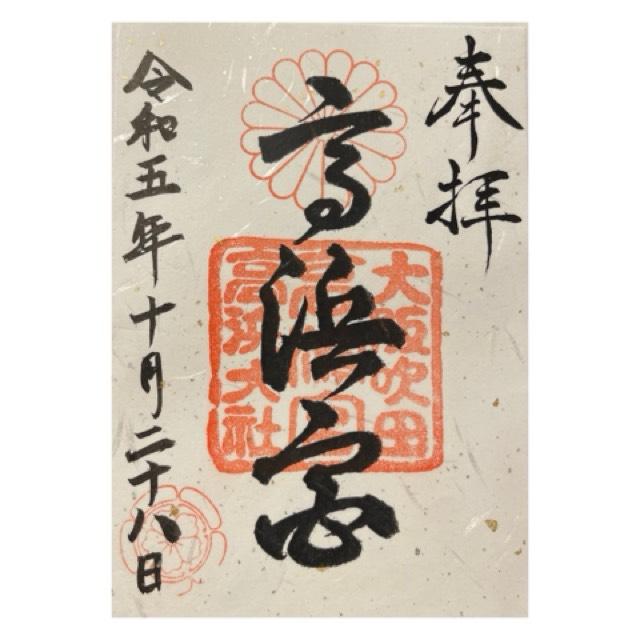 奉拝
高浜宮
大阪吹田
高浜大社
令和五年十月二十八日